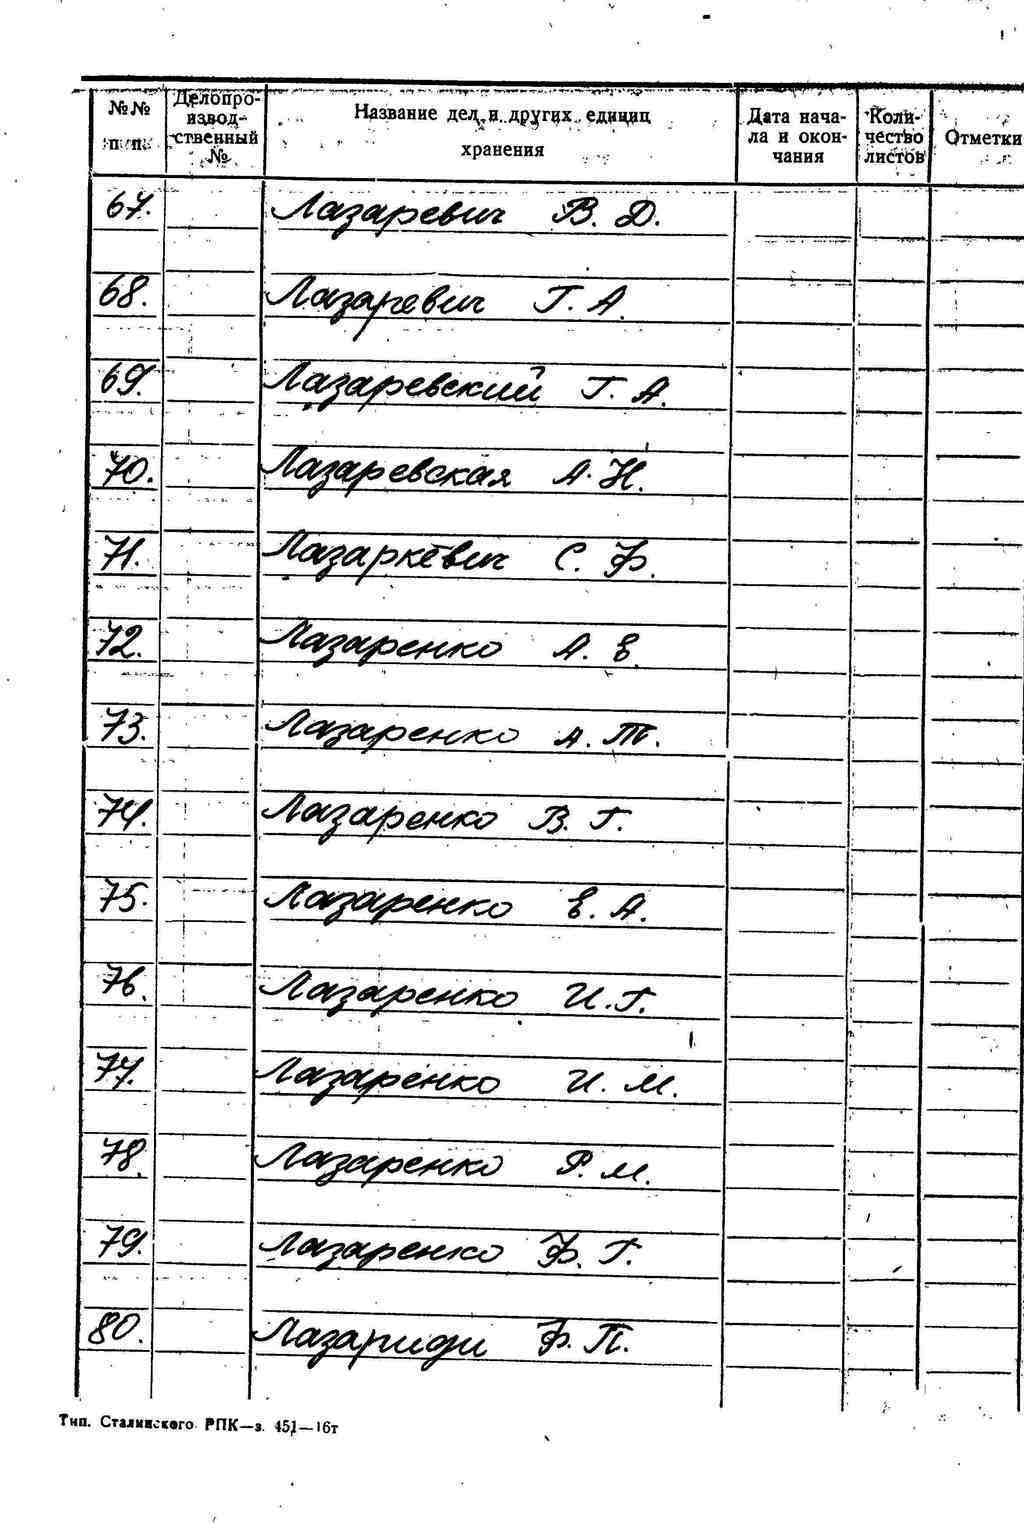 №№ п/п. Делопроизводственный № Название дел и других единиц хранения Дата начала и окончания Количество листов Отметки
67. Лазаревич В. Д.
68. Лазаревич Г. А.
69. Лазаревский Г. А.
70. Лазаревская А. Н.
71. Лазаркевич С. Ф.
72. Лазаренко А. Е.
73. Лазаренко А. Т.
74. Лазаренко В. Г.
75. Лазаренко Е. А.
76. Лазаренко И. Г.
77. Лазаренко И. М.
78. Лазаренко Р. М.
79. Лазаренко Ф. Г.
80. Лазариди Ф. П.
Тип. Сталинского РПК—з. 451—16т